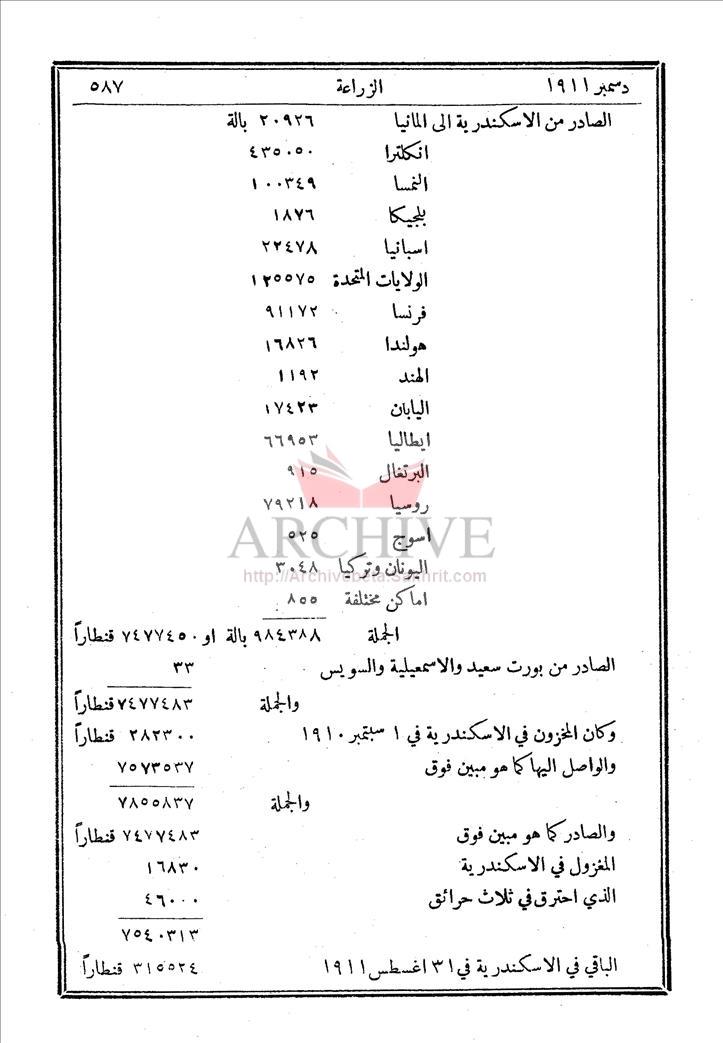 دسمبر ١٩١١ الزراعة ٥٨٧
الصادر من الاسكندرية الى المانيا ٢٠٩٢٦ بالة
انكلترا ٤٣٥٠٥٠
النمسا ١٠٠٣٤٩
بلجيكا ١٨٧٦
اسبانيا ٢٢٤٧٨
الولايات المتحدة ١٢٥٥٧٥
فرنسا ٩١١٧٢
هولندا ١٦٨٢٦
الهند ١١٩٢
اليابان ١٧٤٢٣
ايطاليا ٦٦٩٥٣
البرتغال ٩١٥
روسيا ٧٩٢١٨
اسوج ٥٢٥
ARCHIVE
اليونان وتركيا ٣٠٤٨
http://Archivebeta.Sakhrit.com
اماكن مختلفة ٨٥٥
الجملة ٩٨٤٣٨٨ بالة او ٧٤٧٧٤٥٠ قنطاراً
الصادر من بورت سعيد والاسمعيلية والسويس ٣٣
والجملة ٧٤٧٧٤٨٣ قنطاراً
وكان المخزون في الاسكندرية في ١ سبتمبر ١٩١٠ ٢٨٢٣٠٠ قنطاراً
والواصل اليها كما هو مبين فوق ٧٥٧٣٥٣٧
والجملة ٧٨٥٥٨٣٧
والصادر كما هو مبين فوق ٧٤٧٧٤٨٣ قنطاراً
المغزول في الاسكندرية ١٦٨٣٠
الذي احترق في ثلاث حرائق ٤٦٠٠٠
٧٥٤٠٣١٣
الباقي في الاسكندرية في ٣١ اغسطس ١٩١١ ٣١٥٥٢٤ قنطاراً